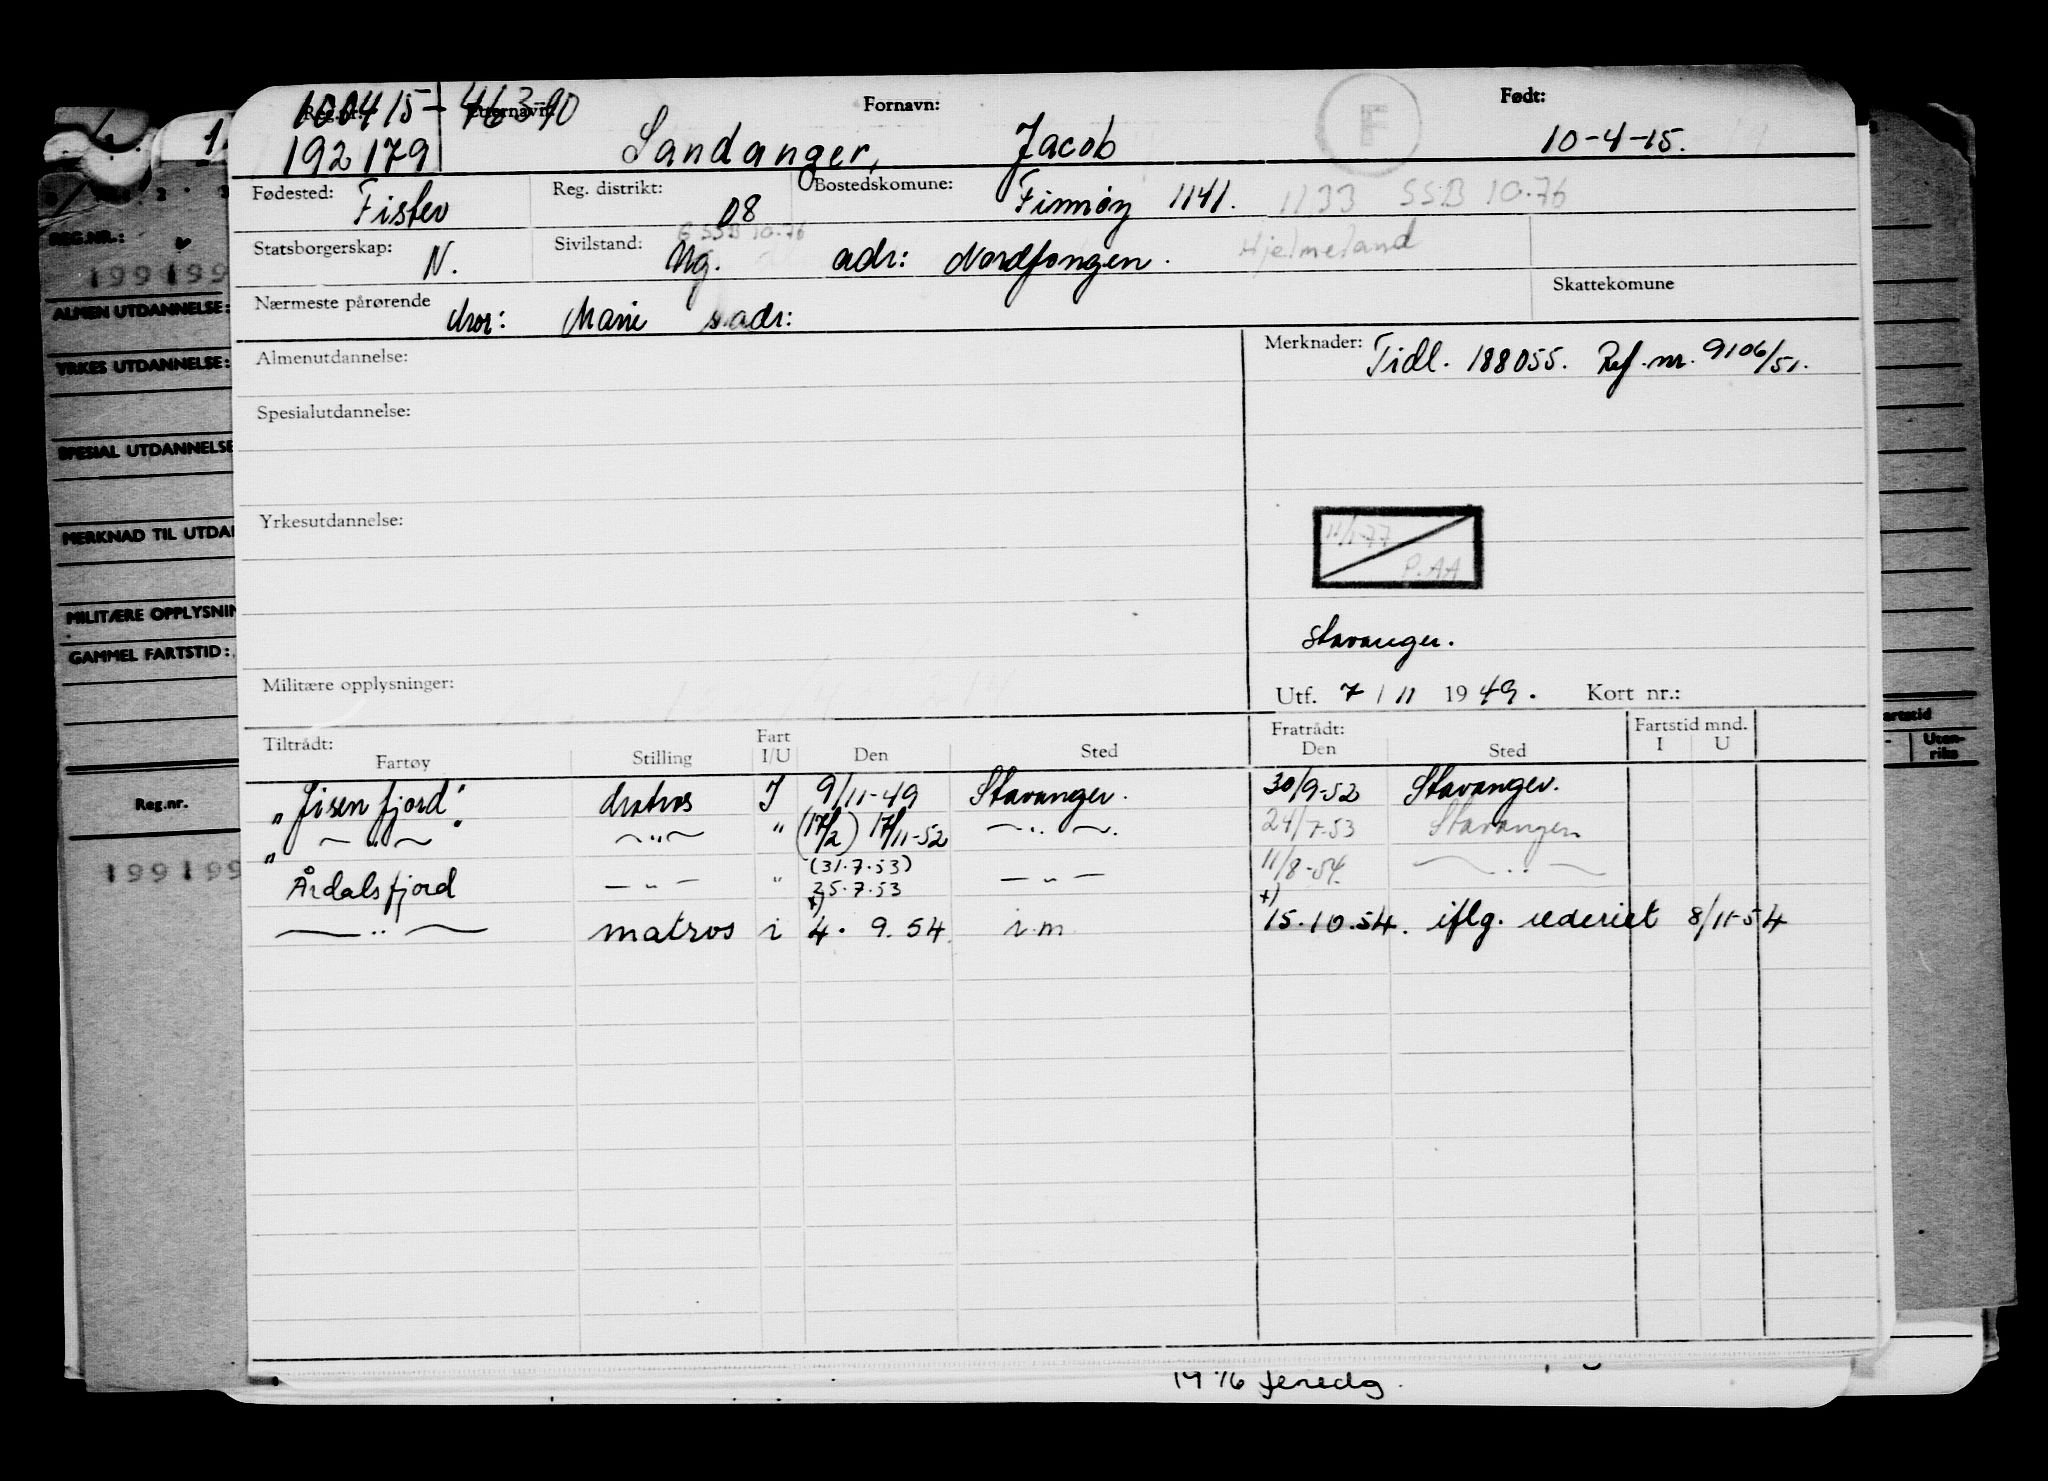 100415-46390
Reg.nr. Etternavn: Fornavn: Født:
192179 Sandanger, Jacob 10-4-15.
F
Fødested: Fister Reg. distrikt: 08 Bostedskomune: Finnøy 1141. 1133 SSB 10.76
G SSB 10-76
Statsborgerskap: N. Sivilstand: Ug. adr: Nordfongen. Hjelmeland
Skattekomune
Nærmeste pårørende Mor: Marie s. adr:
Almenutdannelse:
Merknader: Tidl. 188055. Ref. nr. 9106/51.
Spesialutdannelse:
Yrkesutdannelse:
11/1-77
P.AA
Stavanger.
Militære opplysninger:
Utf. 7/11 1949. Kort nr.:
Tiltrådt: Fart Fratrådt: Fartstid mnd.
Fartøy Stilling I/U Den Sted Den Sted I U
"Jøsenfjord" Matros I 9/11-49 Stavanger. 30/9-52 Stavanger.
" — " — — " — " (17/2) 17/11-52 — " —. 24/7-53 Stavanger
(31.7.53)
Årdalsfjord — " — " 25.7.53 — " — 11/8-54. — " —
x) x)
— " — matros i 4. 9. 54. i.m 15.10.54. iflg. rederiet 8/11-54
1976 feredg.
1
2 3
REG.NR.:
199199
ALMEN UTDANNELSE:
YRKES UTDANNELSE:
SPESIAL UTDANNELSE
MERKNAD TIL UTDAN
MILITÆRE OPPLYSNIN
GAMMEL FARTSTID:
Reg.nr.
199199
artstid
Uten-
riks